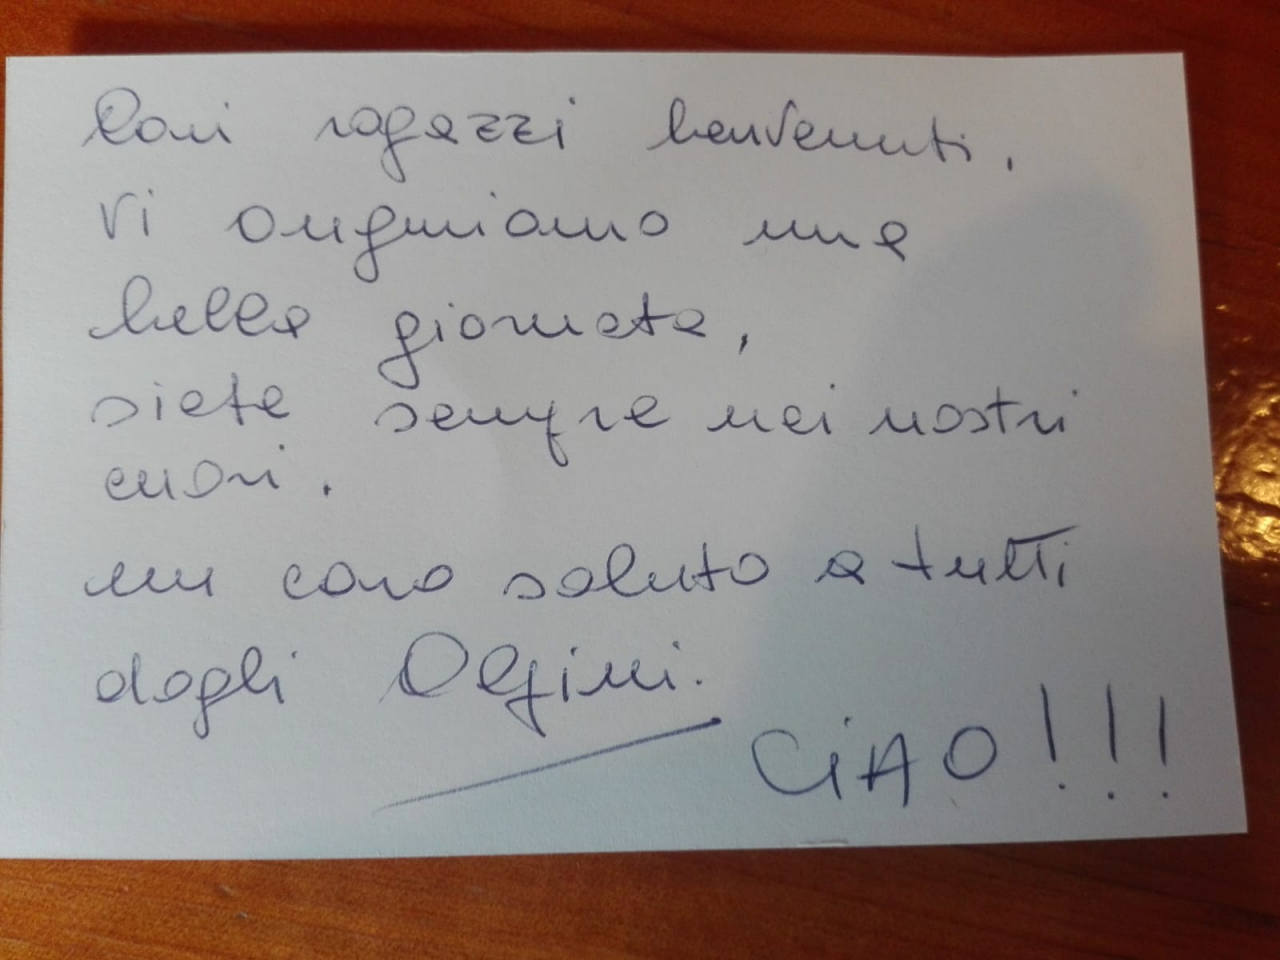 Cari ragazzi benvenuti,
Vi auguriamo una
bella giornata,
siete sempre nei nostri
cuori.
un caro saluto a tutti
dagli Olgini.
CIAO!!!